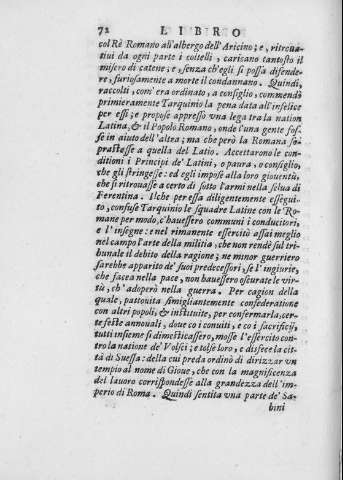 72 LIBRO
col Rè Romano all'albergo dell'Aricino; e, ritroua-
tiui da ogni parte i coltelli, caricano tantosto il
misero di catene; e, senza ch'egli si possa difende-
re, furiosamente a morte il condannano. Quindi,
raccolti, com' era ordinato, a consiglio, commendò
primieramente Tarquinio la pena data all'infelice
per essi; e propose appresso vna lega tra la nation
Latina, & il Popolo Romano, onde l'una gente fos-
se in aiuto dell'altra; ma che però la Romana so-
prastesse a quella del Latio. Accettarono le con-
ditioni i Principi de' Latini, o paura, o consiglio,
che gli stringesse: ed egli impose alla loro giouentù,
che si ritrouasse a certo dì sotto l'armi nella selua di
Ferentina. Ilche per essa diligentemente esegui-
to, confuse Tarquinio le squadre Latine con le Ro-
mane per modo, c'hauessero communi i conducitori,
e l'insegne: e nel rimanente essercitò assai meglio
nel campo l'arte della militia, che non rendè sul tri-
bunale il debito della ragione; ne minor guerriero
sarebbe apparito de' suoi predecessori, se l'ingiurie,
che facea nella pace, non hauessero oscurate le vir-
tù, ch' adoperò nella guerra. Per cagion della
quale, pattouita simigliantemente confederatione
con altri popoli, & instituite, per confermarla, cer-
te feste annouali, doue co i conuiti, e co i sacrificij,
tutti insieme si dimesticassero, mosse l'essercito con-
tro la natione de' Volsci; e tolse loro, e disfece la cit-
tà di Suessa: della cui preda ordinò di dirizzar vn
tempio al nome di Gioue, che con la magnificenza
del lauoro corrispondesse alla grandezza dell'im-
perio di Roma. Quindi sentita vna parte de' Sa-
bini